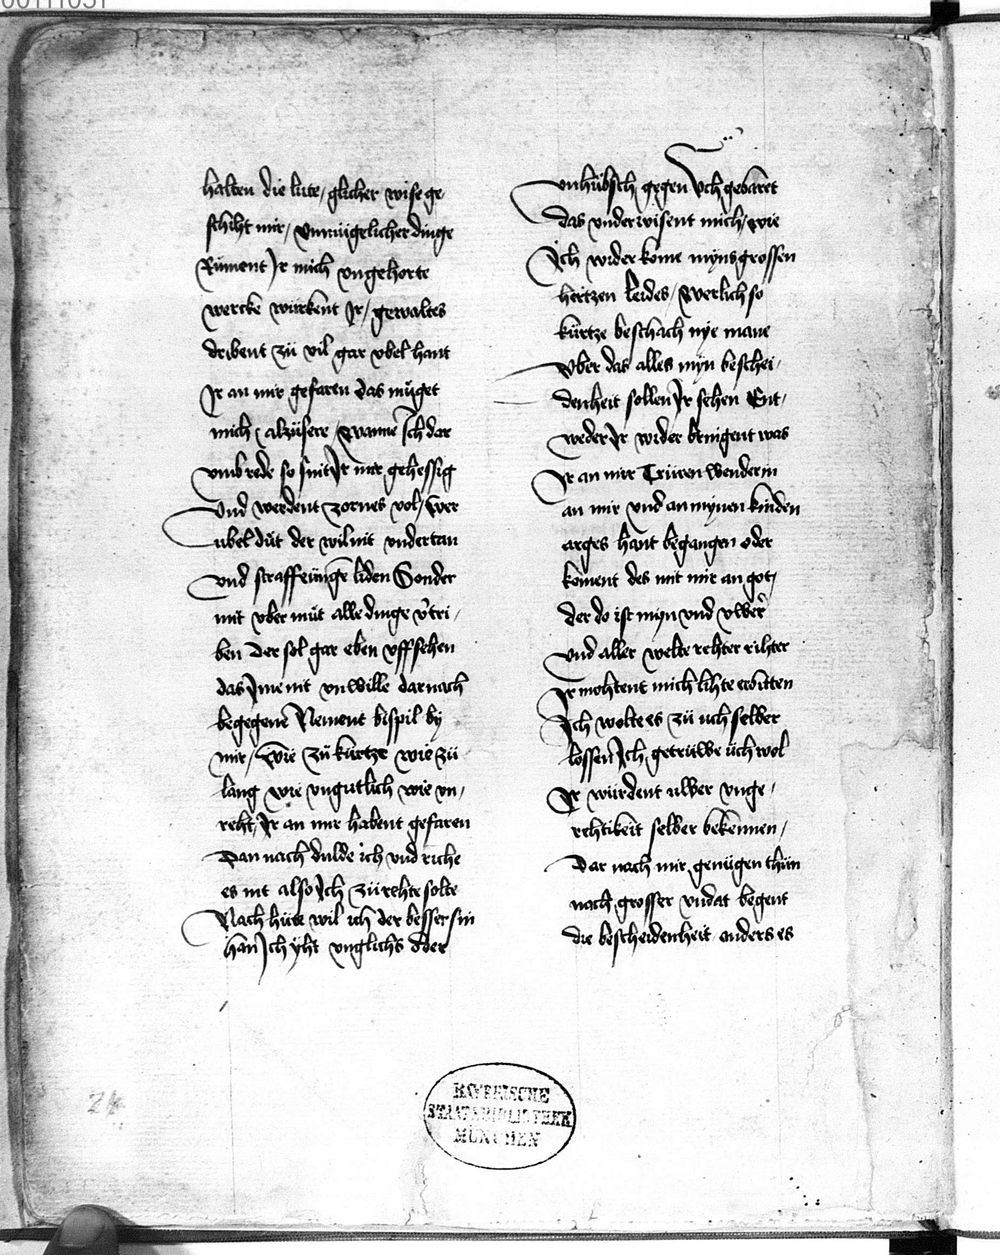 halten die lute / glicher wise ge
schiht mir / vnmúgelicher dinge
Rúment Jr mich vngehorte
wercke wúrkent Jr / gewaltes
tribent zú vil gar vbel hant
Jr an mir gefaren das múget
mich alzúsere / Wanne Jch dar
vmb rede so sint Jr mir gehessig
Vnd werdent zornes vol / Wer
vbel dút der wil nit vndertan
vnd straffeúnge liden Sonder
mit vber mút alle dinge v̓tri /
ben Der sol gar eben vff sehen
das Jme nit vnwille darnach
begegene Nement bispil by
mir / Wie zú kurtze wie zú
lang wie vngutlich wie vn /
reht / Jr an mir habent gefaren
Dan nach dulde ich vnd riche
es nit also Jch zú rehte solte
Nach húte wil ich der besser sin
han Jch yht vnglichs oder
vnhúbsch gegen Vch gebaret
das vnderwisent mich / wie
Jch wider kome myns grossen
hertzen leides / Werlich so
kúrtze beschach nye mane
Vber das alles myn beschei /
denheit sollen Jr sehen Ent /
weder Jr wider bringent was
Jr an mir Trúren wenderin
an mir vnd an mynen kinden
arges hant begangen oder
koment des mit mir an got /
der do ist myn vnd vwer
vnd aller welte rehter rihter
Jr mohtent mich lihte erbitten
Jch wolte es zú uch selber
lossen Jch getrúwe úch wol
Jr wúrdent uwer vnge /
rehtikeit selber bekennen /
Dar nach mir genúgen thún
nach grosser vndat begent
die bescheidenheit anders es
24
BAYERISCHE
STAATSBIBLIOTHEK
MÜNCHEN